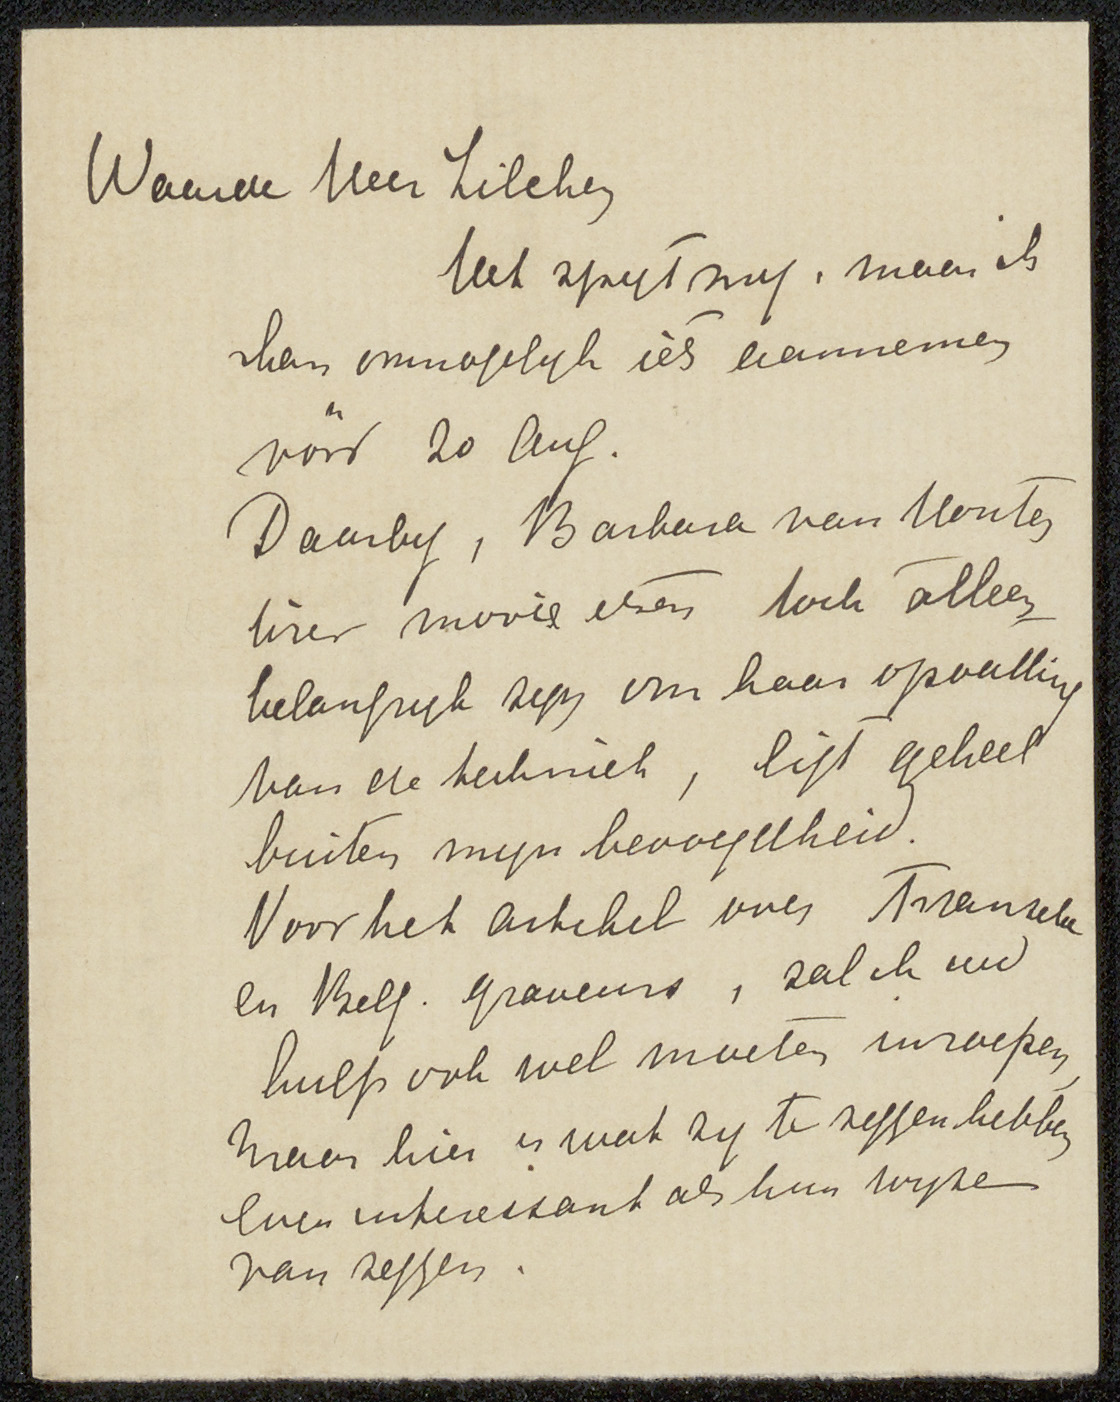 Waarde Heer Zilcken
Het spijt mij, maar ik
kan onmogelijk iets aannemen
vóór 20 Aug.
Daarbij, Barbara van Houten
wier mooie etsen toch alleen
belangrijk zijn om haar opvatting
van de techniek, ligt geheel
buiten mijn bevoegdheid.
Voor het artikel over Fransche
en Belg. graveurs, zal ik uw
hulp ook wel moeten inroepen,
maar hier is wat zij te zeggen hebben
even interessant als hun wijze
van zeggen.